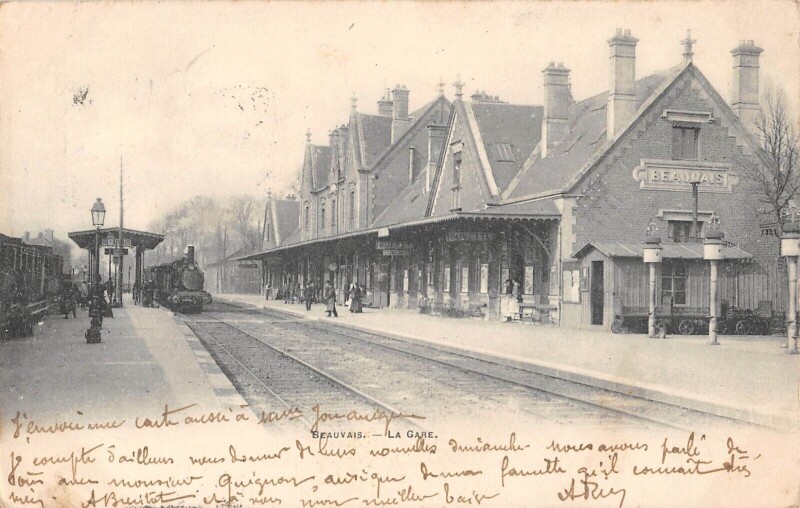 BEAUVAIS
BEAUVAIS. — LA GARE.
J'envoi une carte aussi à Jouanique
Je compte d'ailleurs vous donner de leurs nouvelles dimanche. nous avons parlé de
vous avec monsieur Quignon, ainsi que de ma famille qu'il connaît très
bien. A Bientôt et à vous mon meilleur baiser